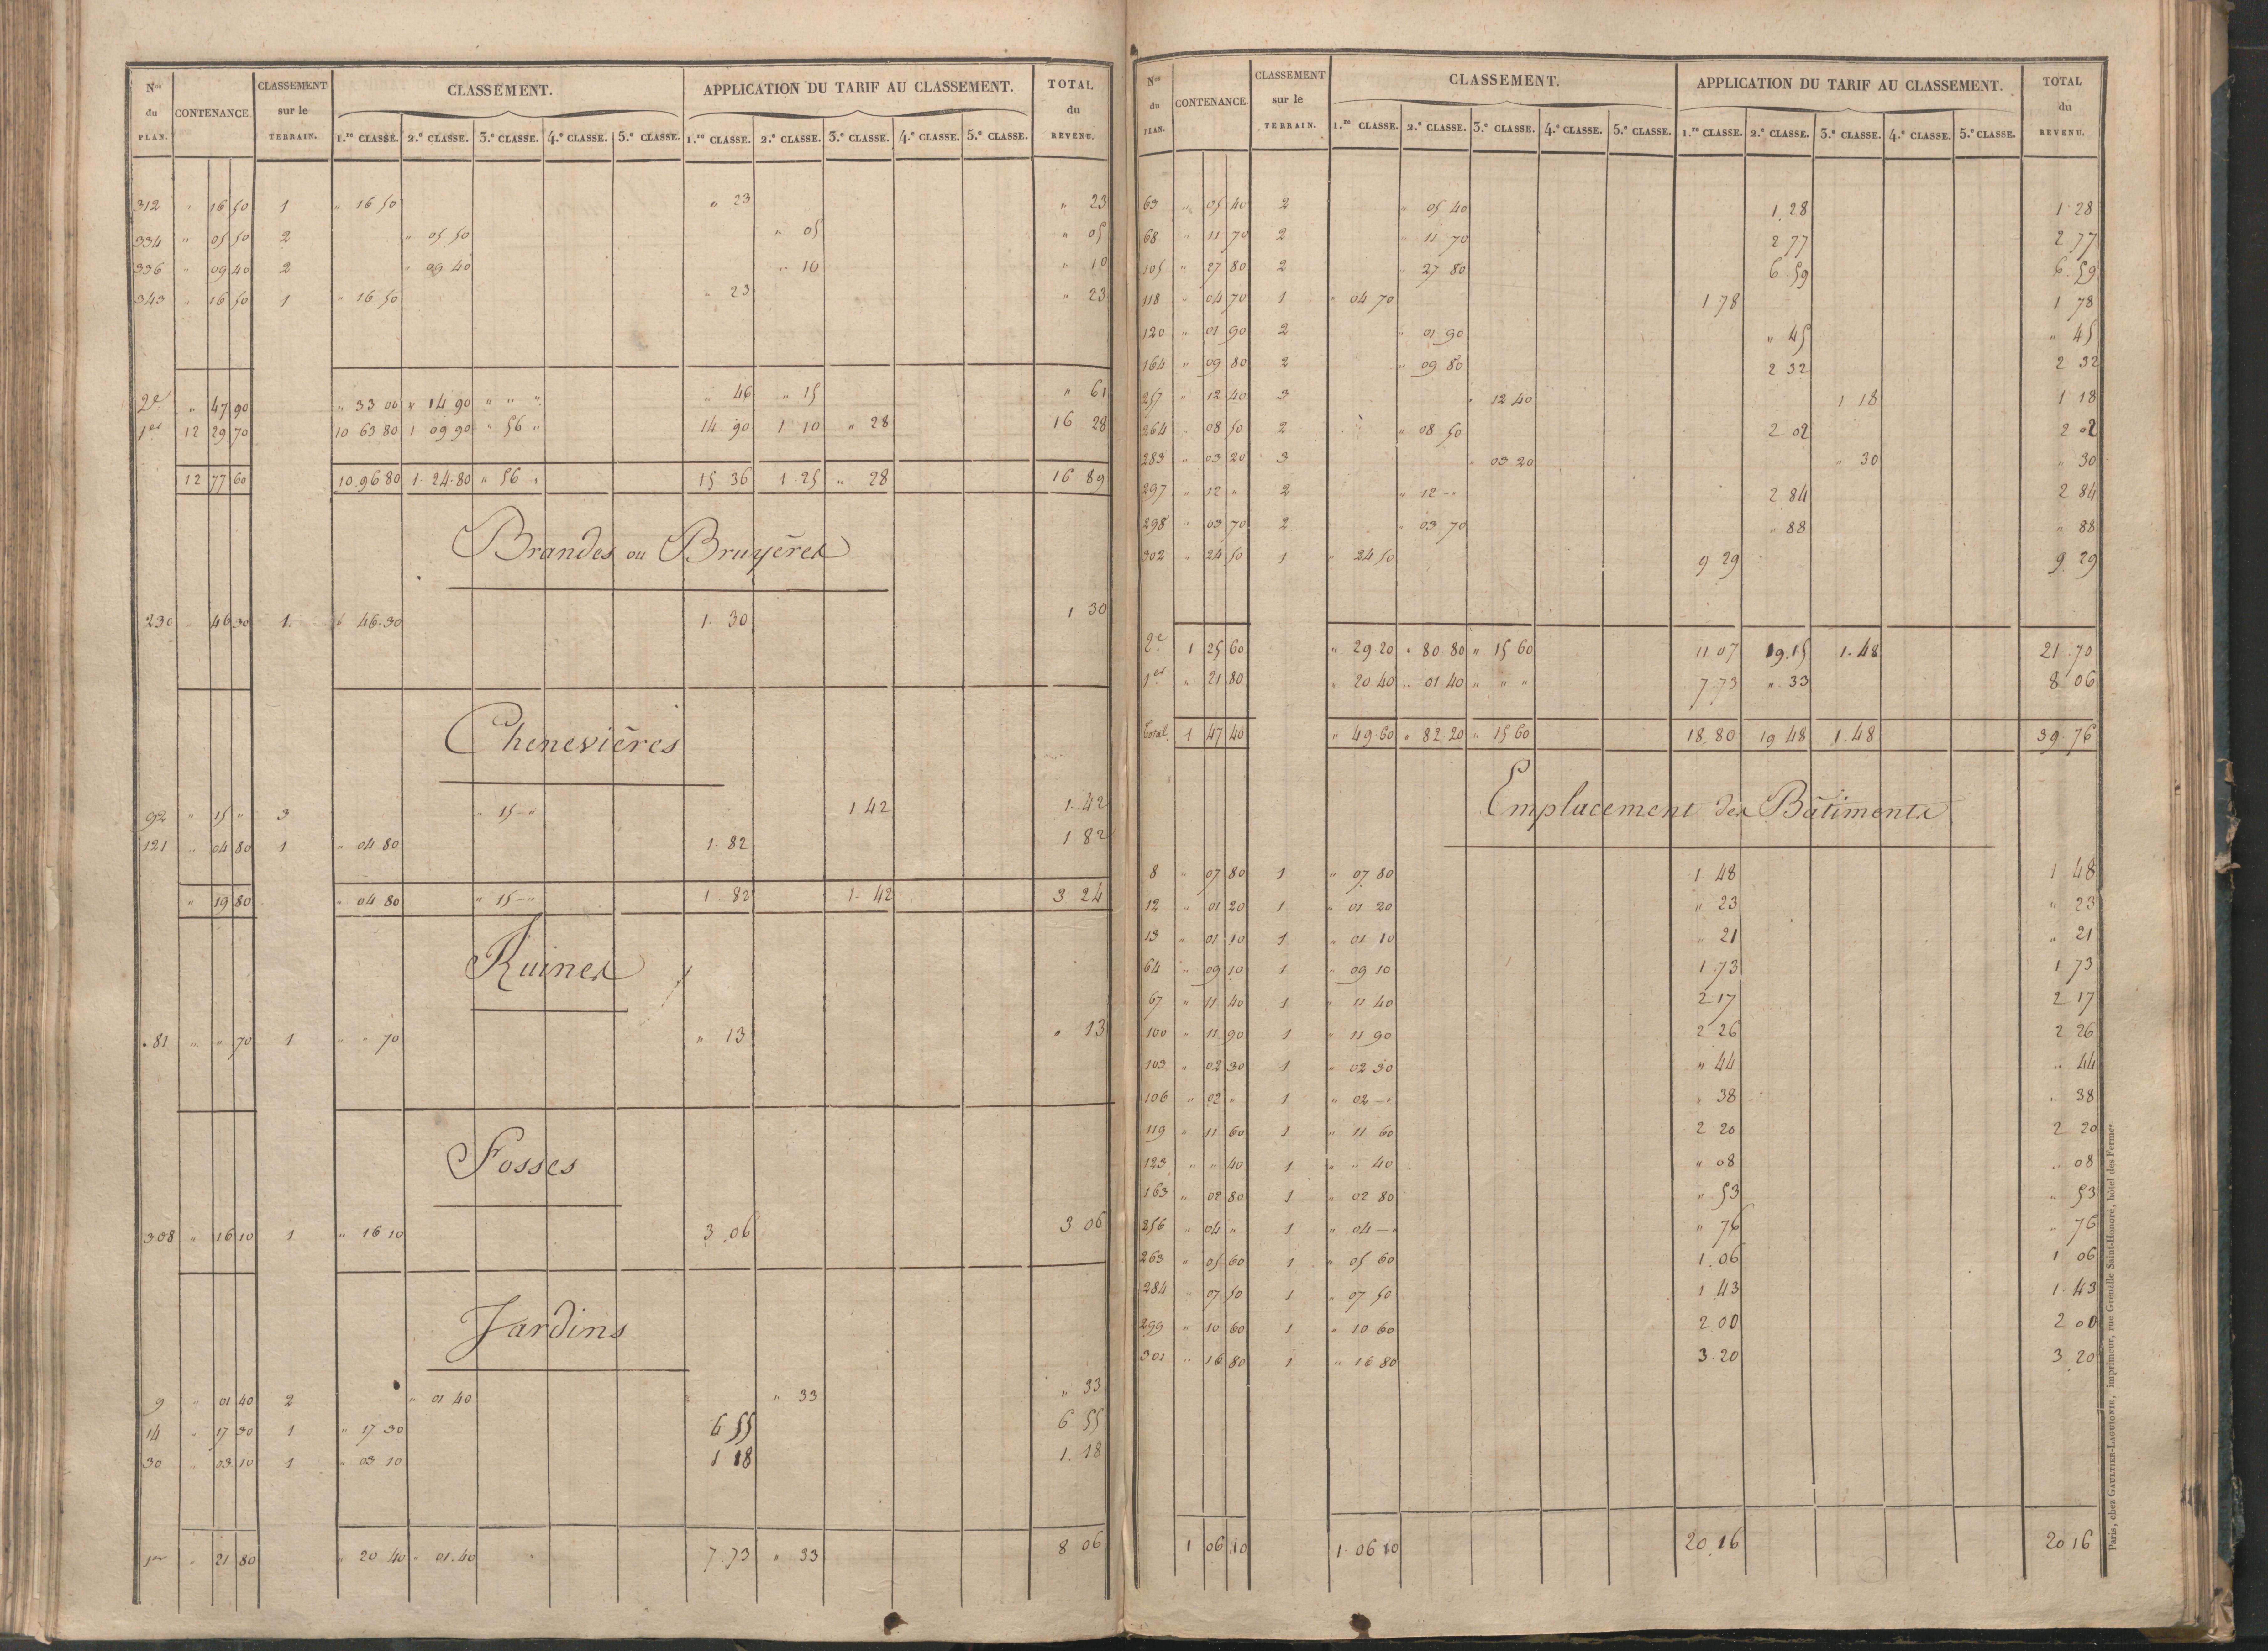 Nos du PLAN. CONTENANCE. CLASSEMENT sur le TERRAIN. CLASSEMENT. APPLICATION DU TARIF AU CLASSEMENT. TOTAL du REVENU.
1.re CLASSE. 2.e CLASSE. 3.e CLASSE. 4.e CLASSE. 5.e CLASSE. 1.re CLASSE. 2.e CLASSE. 3.e CLASSE. 4.e CLASSE. 5.e CLASSE.
312 " 16 50 1 " 16 50 " 23 " 23
334 " 05 50 2 " 05 50 " 05 " 05
336 " 09 40 2 " 09 40 " 10 " 10
343 " 16 50 1 " 16 50 " 23 " 23
2e " 47 90 " 33 00 " 14 90 " " " " 46 " 15 " 61
1er 12 29 70 10 63 80 1 09 90 " 56 " 14 90 1 10 " 28 16 28
12 77 60 10 96 80 1 24 80 " 56 " 15 36 1 25 " 28 16 89
Brandes ou Bruyères
230 46 30 1 " 46 30 1 30 1 30
Chenevières
92 " 15 " 3 " 15 - " 1 42 1 42
121 " 04 80 1 " 04 80 1 82 1 82
" 19 80 " 04 80 " 15 - " 1 82 1 42 3 24
Ruines
81 " " 70 1 " " 70 " 13 " 13
Fosses
308 " 16 10 1 " 16 10 3 06 3 06
Jardins
9 " 01 40 2 " 01 40 " 33 " 33
14 " 17 30 1 " 17 30 6 55 6 55
30 " 03 10 1 " 03 10 1 18 1 18
1er " 21 80 " 20 40 " 01 40 7 73 " 33 8 06
Nos du PLAN. CONTENANCE. CLASSEMENT sur le TERRAIN. CLASSEMENT. APPLICATION DU TARIF AU CLASSEMENT. TOTAL du REVENU.
1.re CLASSE. 2.e CLASSE. 3.e CLASSE. 4.e CLASSE. 5.e CLASSE. 1.re CLASSE. 2.e CLASSE. 3.e CLASSE. 4.e CLASSE. 5.e CLASSE.
63 " 05 40 2 " 05 40 1 28 1 28
68 " 11 70 2 " 11 70 2 77 2 77
105 " 27 80 2 " 27 80 6 59 6 59
118 " 04 70 1 " 04 70 1 78 1 78
120 " 01 90 2 " 01 90 " 45 " 45
164 " 09 80 2 " 09 80 2 32 2 32
257 " 12 40 3 " 12 40 1 18 1 18
264 " 08 50 2 " 08 50 2 02 2 02
283 " 03 20 3 " 03 20 " 30 " 30
297 " 12 " 2 " 12 - " 2 84 2 84
298 " 03 70 2 " 03 70 " 88 " 88
302 " 24 50 1 " 24 50 9 29 9 29
2e 1 25 60 " 29 20 " 80 80 " 15 60 11 07 19 15 1 48 21 70
1er " 21 80 " 20 40 " 01 40 " " " 7 73 " 33 8 06
Total. 1 47 40 " 49 60 " 82 20 " 15 60 18 80 19 48 1 48 39 76
Emplacement des Bâtiments
8 " 07 80 1 " 07 80 1 48 1 48
12 " 01 20 1 " 01 20 " 23 " 23
13 " 01 10 1 " 01 10 " 21 " 21
64 " 09 10 1 " 09 10 1 73 1 73
67 " 11 40 1 " 11 40 2 17 2 17
100 " 11 90 1 " 11 90 2 26 2 26
103 " 02 30 1 " 02 30 " 44 " 44
106 " 02 " 1 " 02 - " " 38 " 38
119 " 11 60 1 " 11 60 2 20 2 20
123 " " 40 1 " " 40 " 08 " 08
163 " 02 80 1 " 02 80 " 53 " 53
256 " 04 " 1 " 04 - " " 76 " 76
263 " 05 60 1 " 05 60 1 06 1 06
284 " 07 50 1 " 07 50 1 43 1 43
299 " 10 60 1 " 10 60 2 00 2 00
301 " 16 80 1 " 16 80 3 20 3 20
1 06 10 1 06 10 20 16 20 16
Paris, chez GAULTIER-LAGUIONIE, imprimeur, rue Grenelle Saint-Honoré, hôtel des Fermes